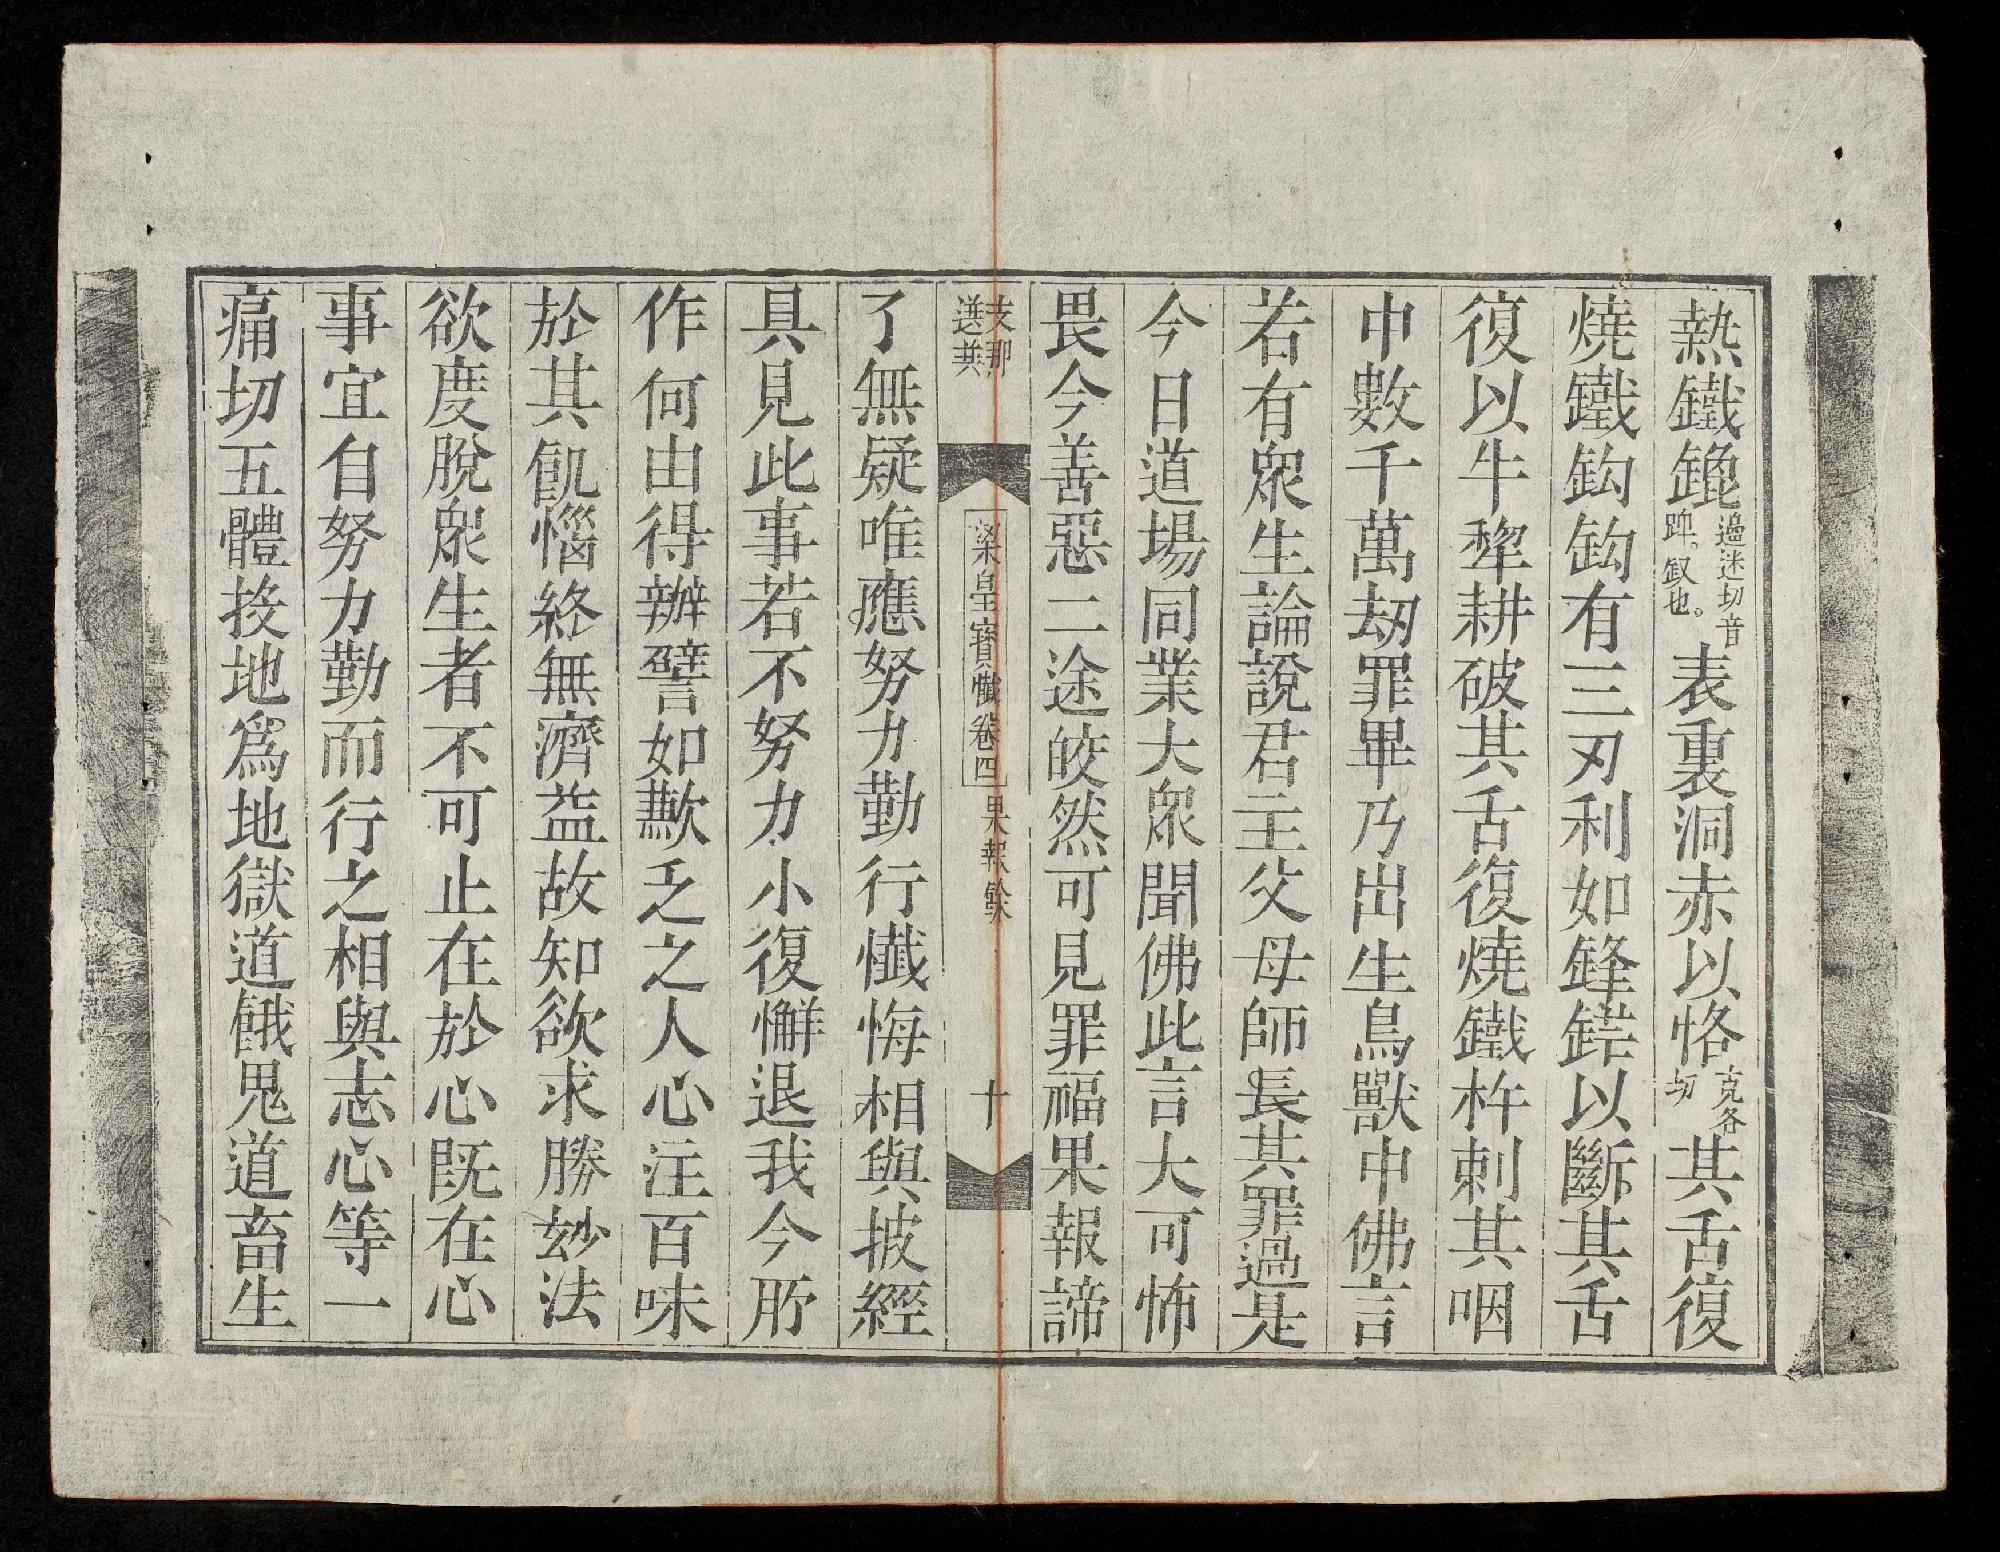 熱鐵鎞邊迷切音豍。釵也。表裏洞赤以恪克各切其舌復
燒鐵鈎鈎有三刃利如鋒鋩以斷其舌
復以牛犂耕破其舌復燒鐵杵刺其咽
中數千萬劫罪畢乃出生鳥獸中佛言
若有衆生論說君主父母師長其罪過是
今日道場同業大衆聞佛此言大可怖
畏今善惡二途皎然可見罪福果報諦
支那
梁皇寶懺卷四 果報餘 十
了無疑唯應努力勤行懺悔相與披經
具見此事若不努力小復懈退我今所
作何由得辦譬如歉乏之人心注百味
於其飢惱終無濟益故知欲求勝妙法
欲度脫衆生者不可止在於心既在心
事宜自努力勤而行之相與志心等一
痛切五體投地爲地獄道餓鬼道畜生